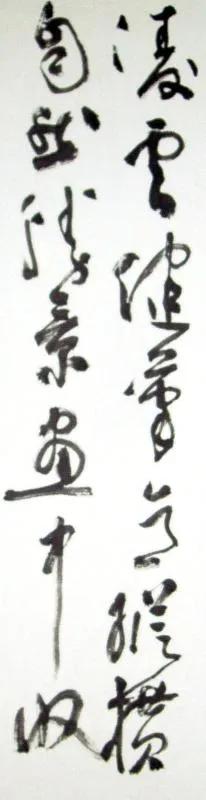 凌雲健筆意縱橫
自然勝景畫中收